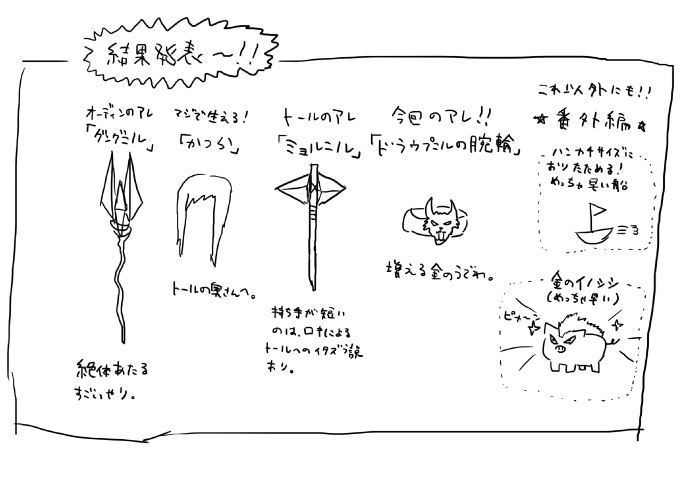 結果発表〜!!
オーディンのアレ
「グングニル」
絶体あたる
すごいやり。
マジで生える!
「かつら」
トールの奥さんへ。
トールのアレ
「ミョルニル」
持ち手が短い
のは、ロキによる
トールへのイタズラ説
あり。
今回のアレ!!
「ドラウプニルの腕輪」
増える金のうでわ。
これ以外にも!!
★番外編★
ハンカチサイズに
おりたためる!
めっちゃ早い船
金のイノシシ
(めっちゃ早い)
ピカーン